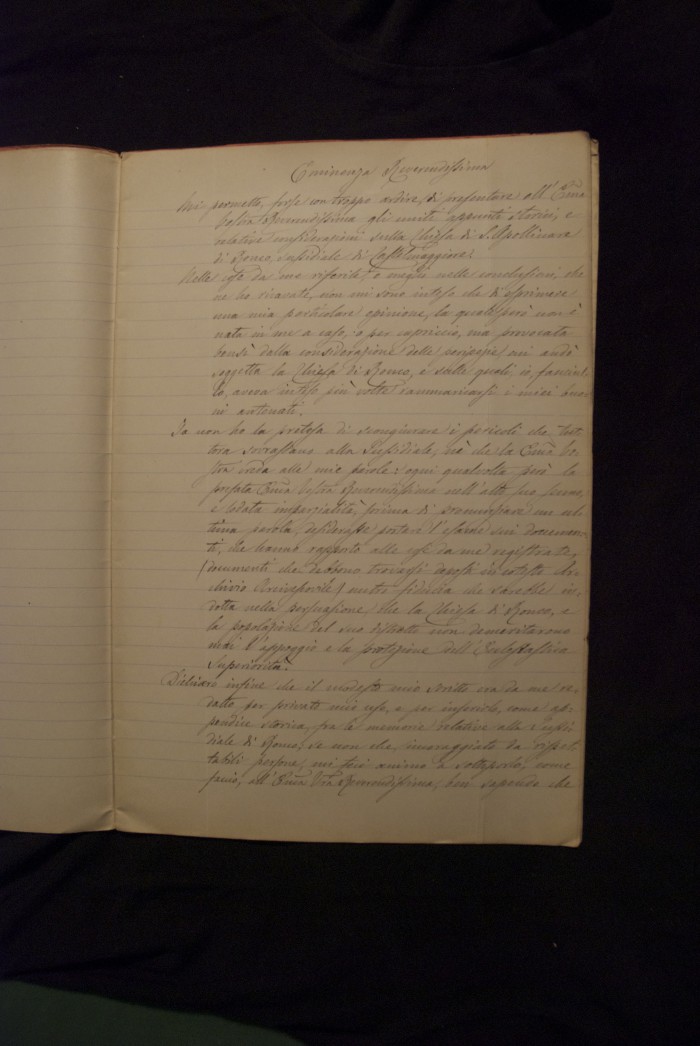 Eminenza Reverendissima
Mi permetto, forse con troppo ardire, di presentare all' Ema
Vostra Reverendissima gli uniti appunti storici, e
relative considerazioni sulla Chiesa di S. Apollinare
di Ronco, sussidiale di Castelmaggiore.
Nelle cose da me riferite, o meglio nelle conclusioni, che
ne ho ricavate, non mi sono inteso che di esprimere
una mia particolare opinione, la quale però non è
nata in me a caso, o per capriccio, ma provocata
bensì dalla considerazione delle peripezie cui andò
soggetta la Chiesa di Ronco, e sulle quali io, fanciul-
lo, aveva inteso più volte rammaricarsi i miei buo-
ni antenati.
Io non ho la pretesa di scongiurare i pericoli che tut-
tora sovrastano alla Sussidiale, nè che la Ema Vo-
stra creda alle mie parole: ogni qualvolta però la
prefata Ema Vostra Reverendissima nell' alto suo senno,
e lodata imparzialità, prima di pronunziare un' ul-
tima parola, desiderasse portare l' esame sui documen-
ti, che hanno rapporto alle cose da me registrate,
(documenti che debbono trovarsi deposti in cotesto Ar-
chivio Arcivescovile) nutro fiducia che sarebbe in-
dotta nella persuasione che la Chiesa di Ronco, e
la popolazione del suo distretto non demeritarono
mai l' appoggio e la protezione dell' Ecclesiastica
Superiorità.
Dichiaro infine che il modesto mio scritto era da me re-
datto per privato mio uso, e per inserirlo, come ap-
pendice storica, fra le memorie relative alla Sussi-
diale di Ronco, se non che, incoraggiato da rispet-
tabili persone, mi feci animo a sottoporlo, come
faccio, all' Ema Vra Reverendissima, ben sapendo che